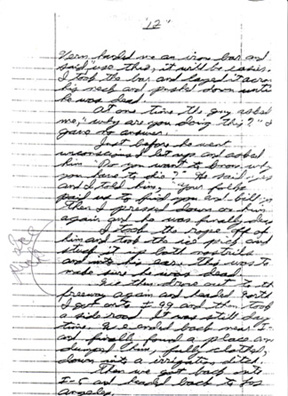 "12"
Vern handed me an iron bar and
said "use this, it will be easier.
I took the bar and layed it across
his neck and pushed down until
he was dead.
At one time the guy asked
me, "why are you doing this?" I
gave no answer.
Just before he went
unconscious I let up and asked
him "Do you want to know why
you have to die?" He said yes
and I told him, "Your folks
paid me to find you and kill you
then I pressed down on him
again and he was finally dead
I took the rope off of
him and took the ice pick and
it up both nostrils
and into his ears. This was to
make sure he was dead.
We then drove out to the
freeway again and headed North
I got onto I-5 and then took
a side road. It was still day
time. We ended back near I-
and finally found a place and
dumped him, fully clothed,
down into a irrigation ditch
Then we got back onto
I-5 and headed back to Los
Angeles.